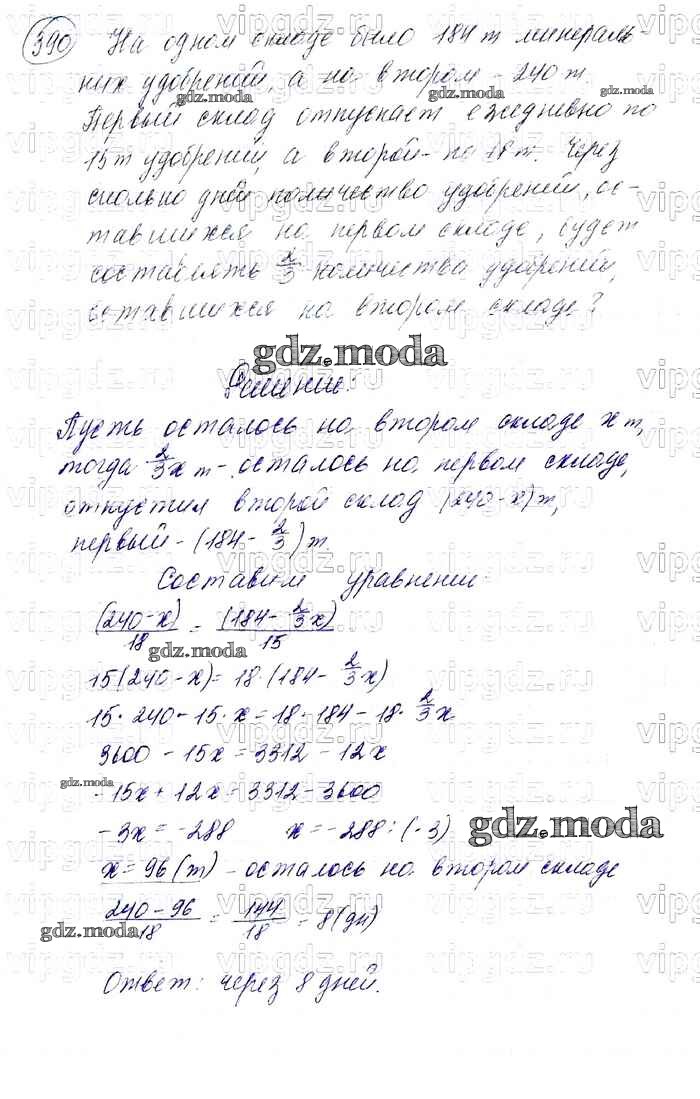 390 На одном складе было 184 т минераль-
ных удобрений, а на втором - 240 т.
Первый склад отпускает ежедневно по
15 т удобрений, а второй - по 18 т. Через
сколько дней количество удобрений, ос-
тавшихся на первом складе, будет
составлять 2/3 количества удобрений,
оставшихся на втором складе?
gdz.moda
Решение:
Пусть осталось на втором складе x т,
тогда 2/3x т - осталось на первом складе,
отпустил второй склад (240-x) т,
первый - (184 - 2/3) т.
Составим уравнение:
(240-x)/18 = (184 - 2/3x)/15
gdz.moda
15(240-x) = 18·(184 - 2/3x)
15·240 - 15·x = 18·184 - 18·2/3x
3600 - 15x = 3312 - 12x
gdz.moda
-15x + 12x = 3312 - 3600
-3x = -288 x = -288 : (-3)
gdz.moda
x = 96 (т) - осталось на втором складе
(240-96)/18 = 144/18 = 8 (дн)
gdz.moda
Ответ: через 8 дней.